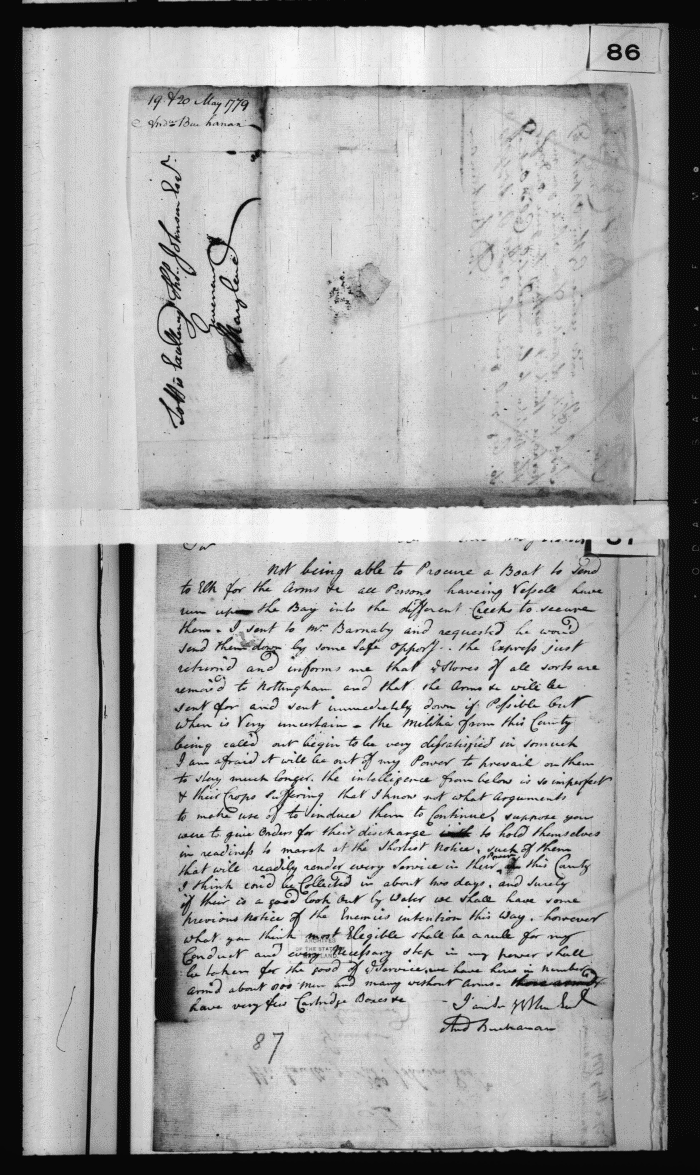 86
19 & 20 May 1779
Andw Buchanan
His Excellency Thos Johnson Esqr
Governor
Maryland
Sir
Not being able to Procure a Boat to send
to Elk for the Arms &c all Persons haveing Vessells have
run up the Bay into the different Creeks to secure
them - I sent to Mr Barnaby and requested he would
send them down by some safe oppory .. the Express just
return'd and informs me that Stores of all sorts are
remov'd to Nottingham and that the Arms &c will be
sent for and sent immediately down if Possible but
when is Very uncertain - the Militia from this County
being called out begin to be very disatisfied in somuch
I am afraid it will be out of my Power to prevail on them
to stay much longer. the intelligence from below is so imperfect
& their Crops suffering that I know not what arguments
to make use of to induce them to Continue, suppose you
were to give orders for their discharge to hold themselves
in readiness to march at the shortest Notice, such of them
that will readily render every Service in their power in this County
I think cou'd be Collected in about two days, and surely
if their is a good look out by Water we shall have some
previous Notice of the Enemies intention this Way. however
what you think most Elegible shall be a rule for my
Conduct and every Necessary step in my power shall
be taken for the good of Service, we have here in number
arm'd about 800 Men and many without Arms -
have very few Cartridge Boxes &c
And Buchanan
ARCHIVES
OF THE STATE
87